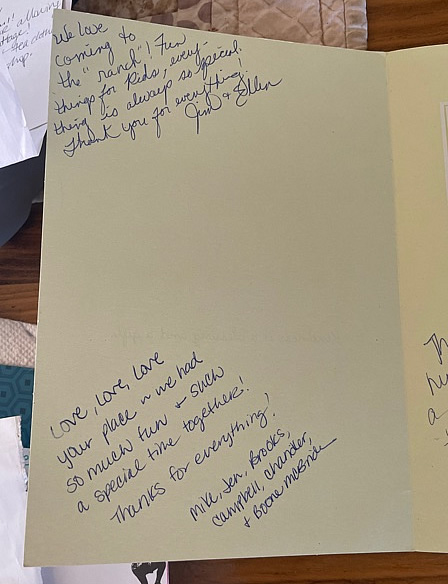 We love
coming to
the "ranch"! Fun
things for kids, every-
thing is always so special.
Thank you for everything!
Jim & Ellen
Love, Love, Love
your place n we had
so much fun & such
a special time together!
Thanks for everything!
Mike, Jen, Brooks,
Campbell, Chandler,
& Boone McBride
Th
a